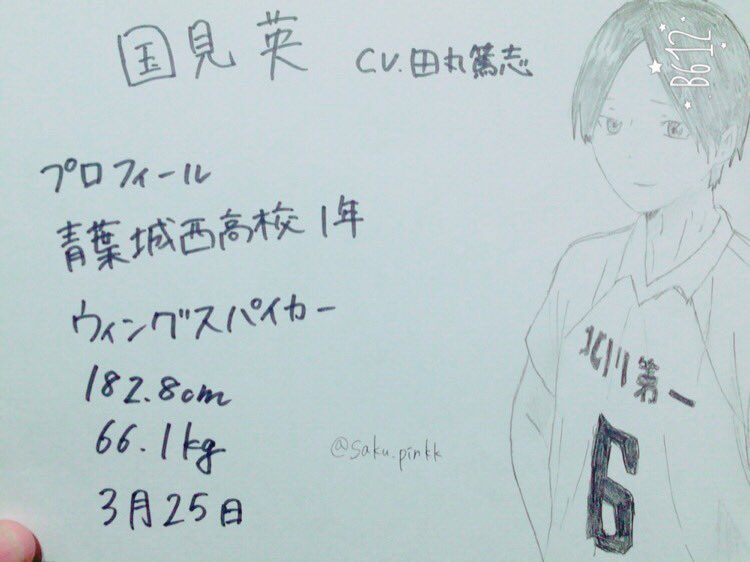 国見英 CV.田丸篤志
プロフィール
青葉城西高校1年
ウィングスパイカー
182.8cm
66.1kg
3月25日
@saku.pinkk
北川第一
6
B612